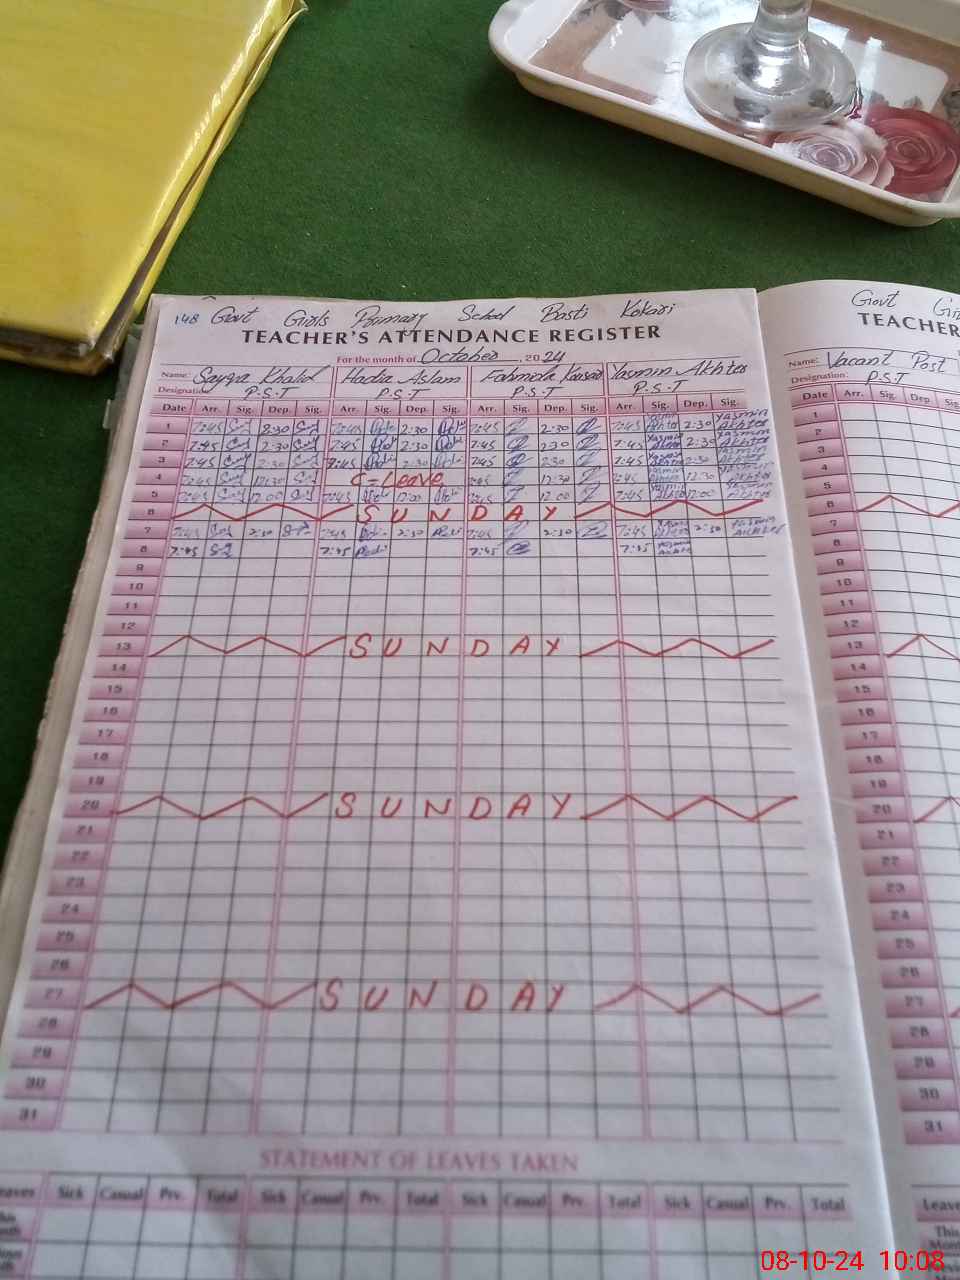 148 Govt Girls Primary School Basti Kokari
TEACHER'S ATTENDANCE REGISTER
For the month of October, 2024
Name: Sayyra Khalid Hadia Aslam Fahmida Kausar Yasmin Akhter
Designation: P.S.T P.S.T P.S.T P.S.T
Date Arr. Sig. Dep. Sig. Arr. Sig. Dep. Sig. Arr. Sig. Dep. Sig. Arr. Sig. Dep. Sig.
1 7:45 2:30 7:45 2:30 7:45 2:30 7:45 Yasmin Akhter 2:30 Yasmin Akhter
2 7:45 2:30 7:45 2:30 7:45 2:30 7:45 Yasmin Akhter 2:30 Yasmin Akhter
3 7:45 2:30 7:45 2:30 7:45 2:30 7:45 Yasmin Akhter 2:30 Yasmin Akhter
4 7:45 12:30 C=Leave 7:45 12:30 7:45 Yasmin Akhter 12:30 Yasmin Akhter
5 7:45 12:00 7:45 12:00 7:45 12:00 7:45 Yasmin Akhter 12:00 Yasmin Akhter
6 SUNDAY
7 7:45 2:30 7:45 2:30 7:45 2:30 7:45 Yasmin Akhter 2:30 Yasmin Akhter
8 7:45 7:45 7:45 7:45 Yasmin Akhter
9
10
11
12
13 SUNDAY
14
15
16
17
18
19
20 SUNDAY
21
22
23
24
25
26
27 SUNDAY
28
29
30
31
STATEMENT OF LEAVES TAKEN
Sick Casual Prv. Total Sick Casual Prv. Total Sick Casual Prv. Total Sick Casual Prv. Total
Govt
TEACHER
Name: Vacant Post
Designation: P.S.T
Date Arr. Sig. Dep. Sig.
1
2
3
4
5
6
7
8
9
10
11
12
13
14
15
16
17
18
19
20
21
22
23
24
25
26
27
28
29
30
31
Leave
This
08-10-24 10:08